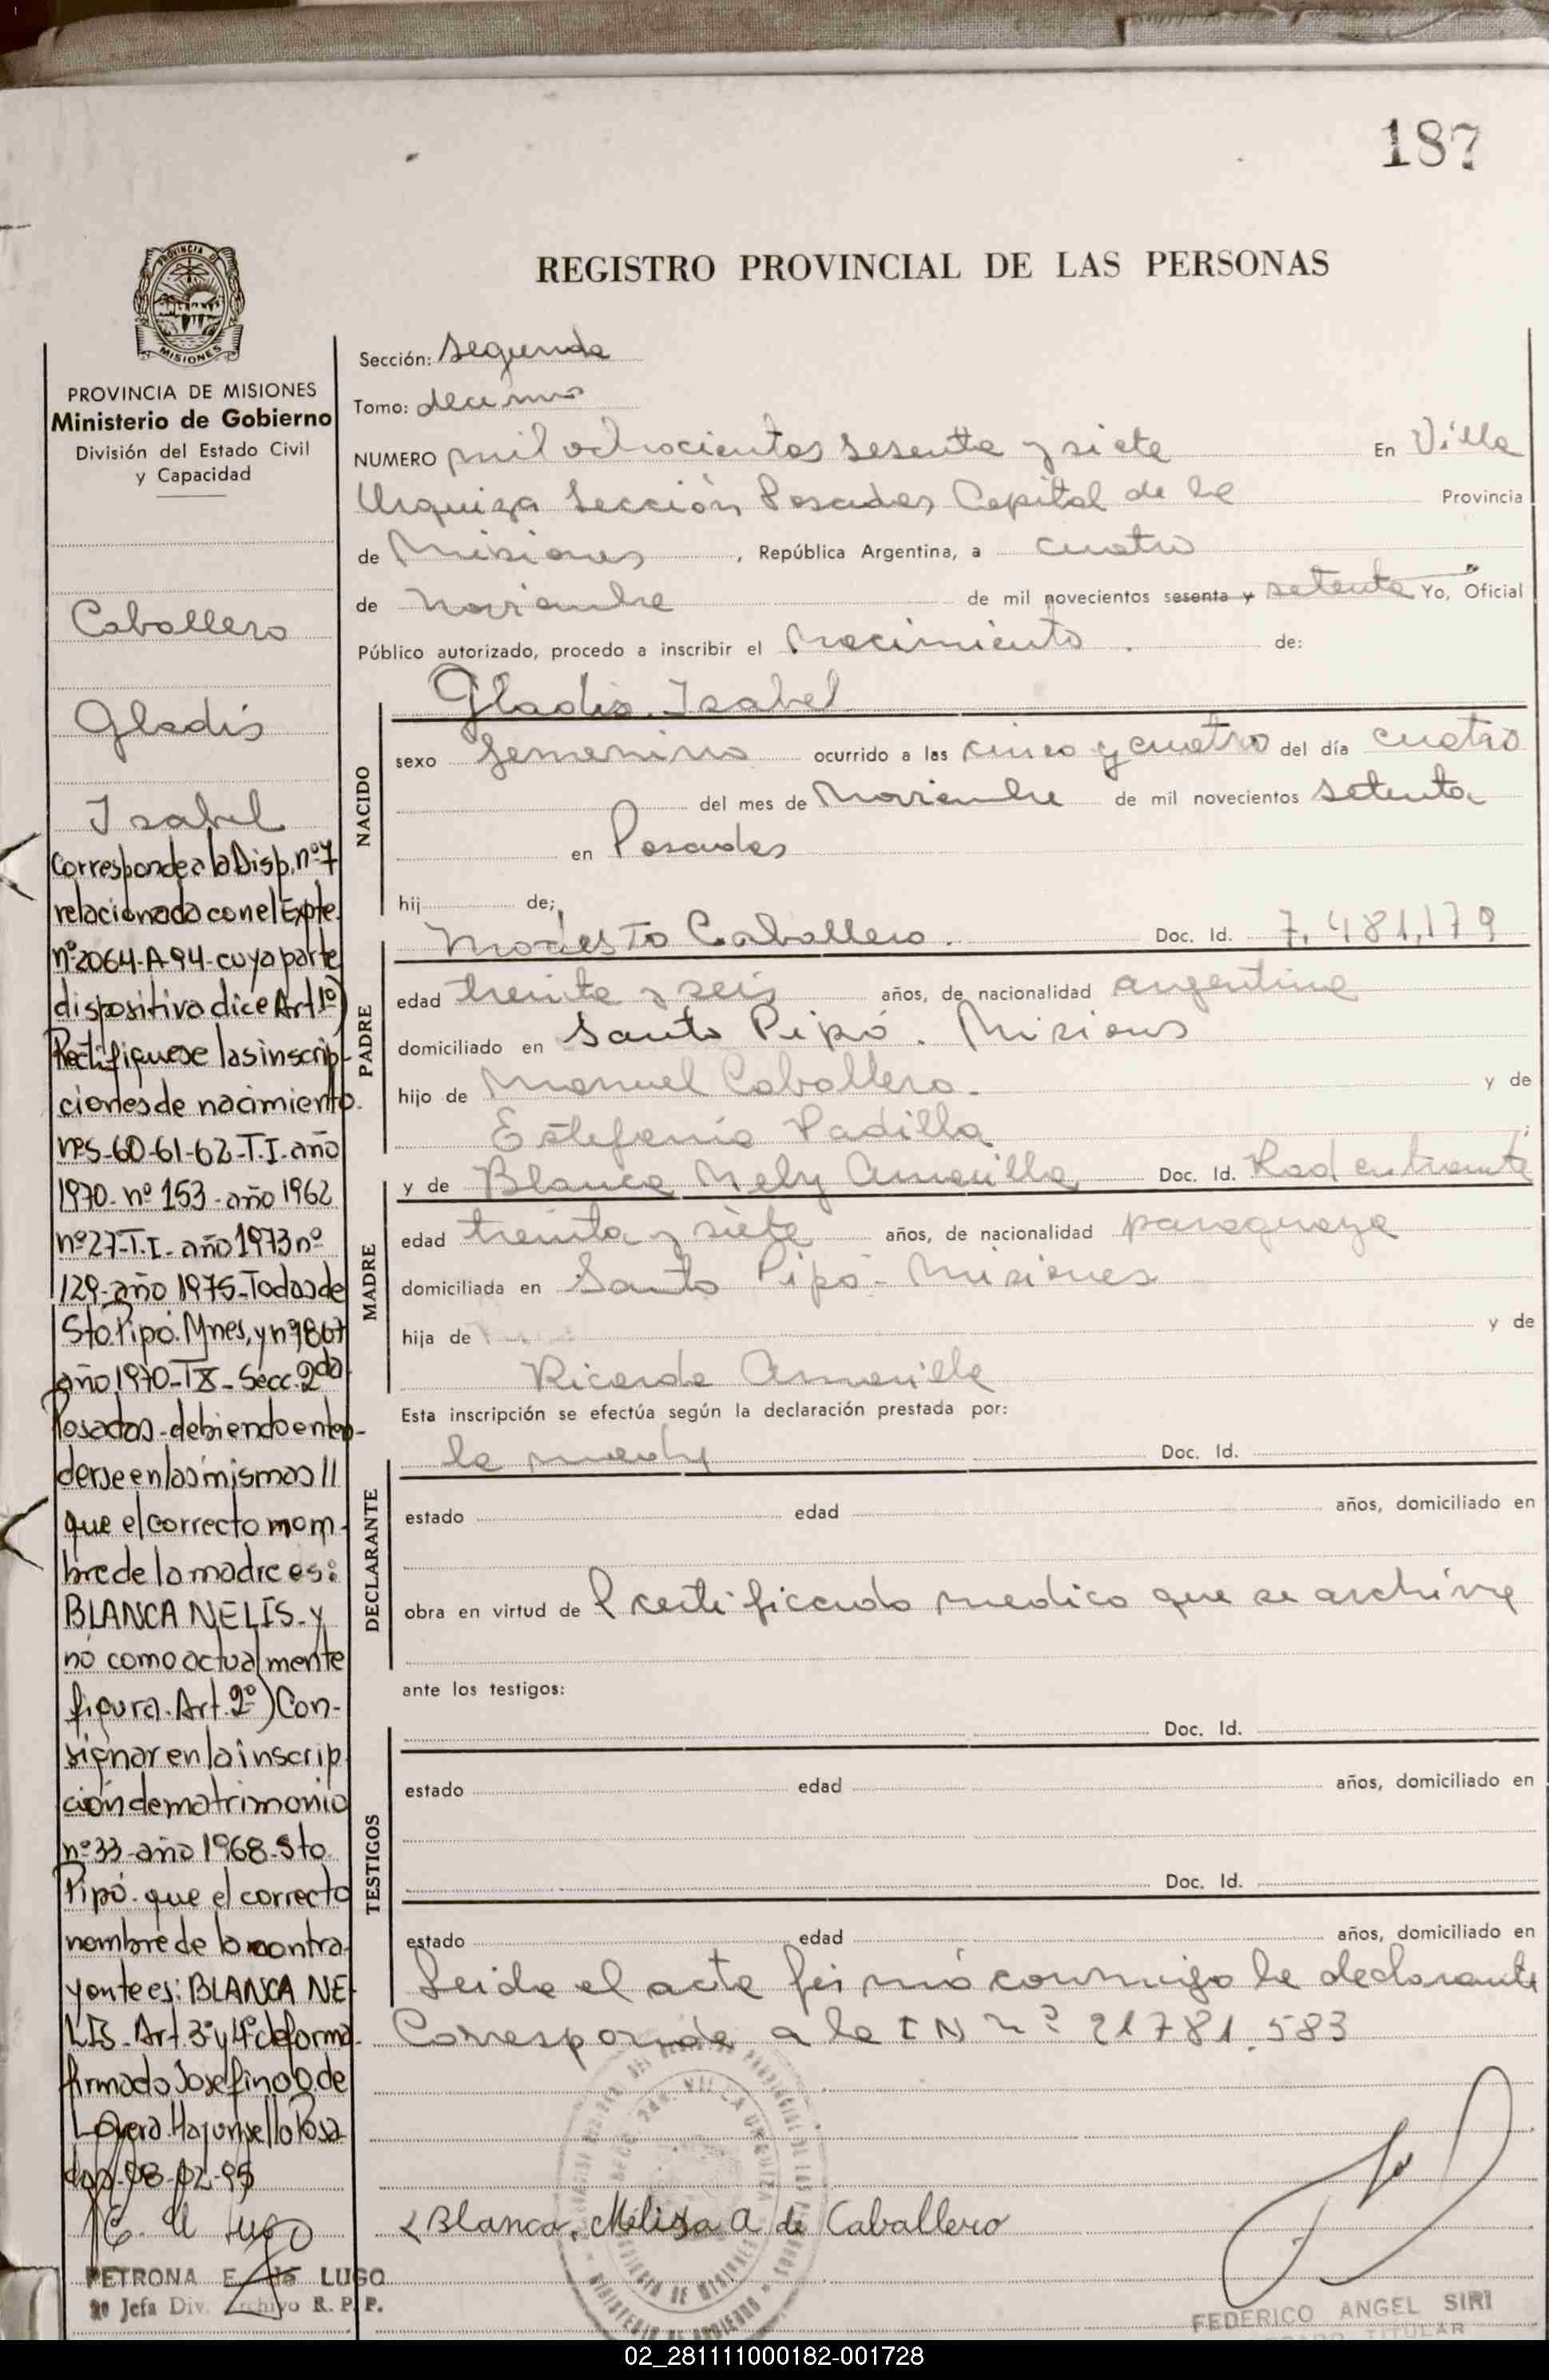 187
REGISTRO PROVINCIAL DE LAS PERSONAS
PROVINCIA DE MISIONES
Ministerio de Gobierno
División del Estado Civil
y Capacidad
Caballero
Gladis
Isabel
Corresponde a la Disp. nº 7
relacionada con el Expte.
nº 2064-A-94-cuya parte
dispositiva dice Art 1º)
Rectifiquese las inscrip-
ciones de nacimiento.
nºs-60-61-62-T.I-año
1970-nº 153-año 1962
nº 27-T.I-año 1973 nº
129-año 1975-Todas de
Sto. Pipó. Mnes, y nº 1867
año 1970-TX-Secc. 2da
Posadas-debiendo enten-
derse en las mismas //
que el correcto nom-
bre de la madre es:
BLANCA NELIS-y
no como actualmente
figura. Art. 2º) Con-
signar en la inscrip
ción de matrimonio
nº 33-año 1968-Sto
Pipó-que el correcto
nombre de la contra
yente es: BLANCA NE
LIS-Art 3º y 4º de forma.
firmado Josefina O de
Lovera. Hay un sello Posa
das-08-02-95
PETRONA E. de LUGO
Jefa Div. Archivo R. P. P.
Sección: Segunda
Tomo: decimo
NUMERO mil ochocientos sesenta y siete En Villa
Urquiza Sección Posadas Capital de la Provincia
de Misiones, República Argentina, a cuatro
de Noviembre de mil novecientos sesenta y setenta Yo, Oficial
Público autorizado, procedo a inscribir el Nacimiento. de:
Gladis Isabel
NACIDO
sexo femenino ocurrido a las cinco y cuatro del día cuatro
del mes de Noviembre de mil novecientos setenta
en Posadas
hij de;
PADRE
Modesto Caballero. Doc. Id. 7.481,179
edad treinta y seis años, de nacionalidad argentina
domiciliado en Santo Pipó. Misiones
hijo de Manuel Caballero. y de
Estefania Padilla
MADRE
y de Blanca Nely Amarilla Doc. Id. Rad en tramite
edad treinta y siete años, de nacionalidad paraguaya
domiciliada en Santo Pipó-Misiones
hija de y de
Ricarda Amarilla
Esta inscripción se efectúa según la declaración prestada por:
DECLARANTE
la madre Doc. Id.
estado edad años, domiciliado en
obra en virtud de l certificado medico que se archiva
ante los testigos:
TESTIGOS
Doc. Id.
estado edad años, domiciliado en
Doc. Id.
estado edad años, domiciliado en
Leida el acta firmó conmigo la declarante
Corresponde a la I N nº 21781.583
Blanca, Mélida A de Caballero
FEDERICO ANGEL SIRI
TITULAR
02_281111000182-001728